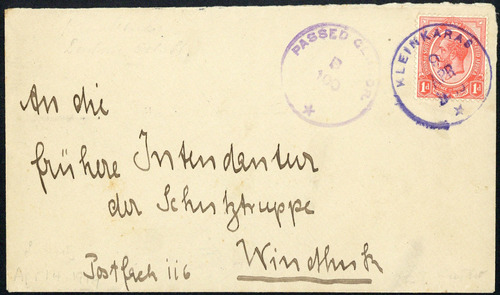 PASSED CENSOR
D
100
KLEINKARAS
1d 1d
An die
frühere Intendantur
der Schutztruppe
Postfach 116 Windhuk